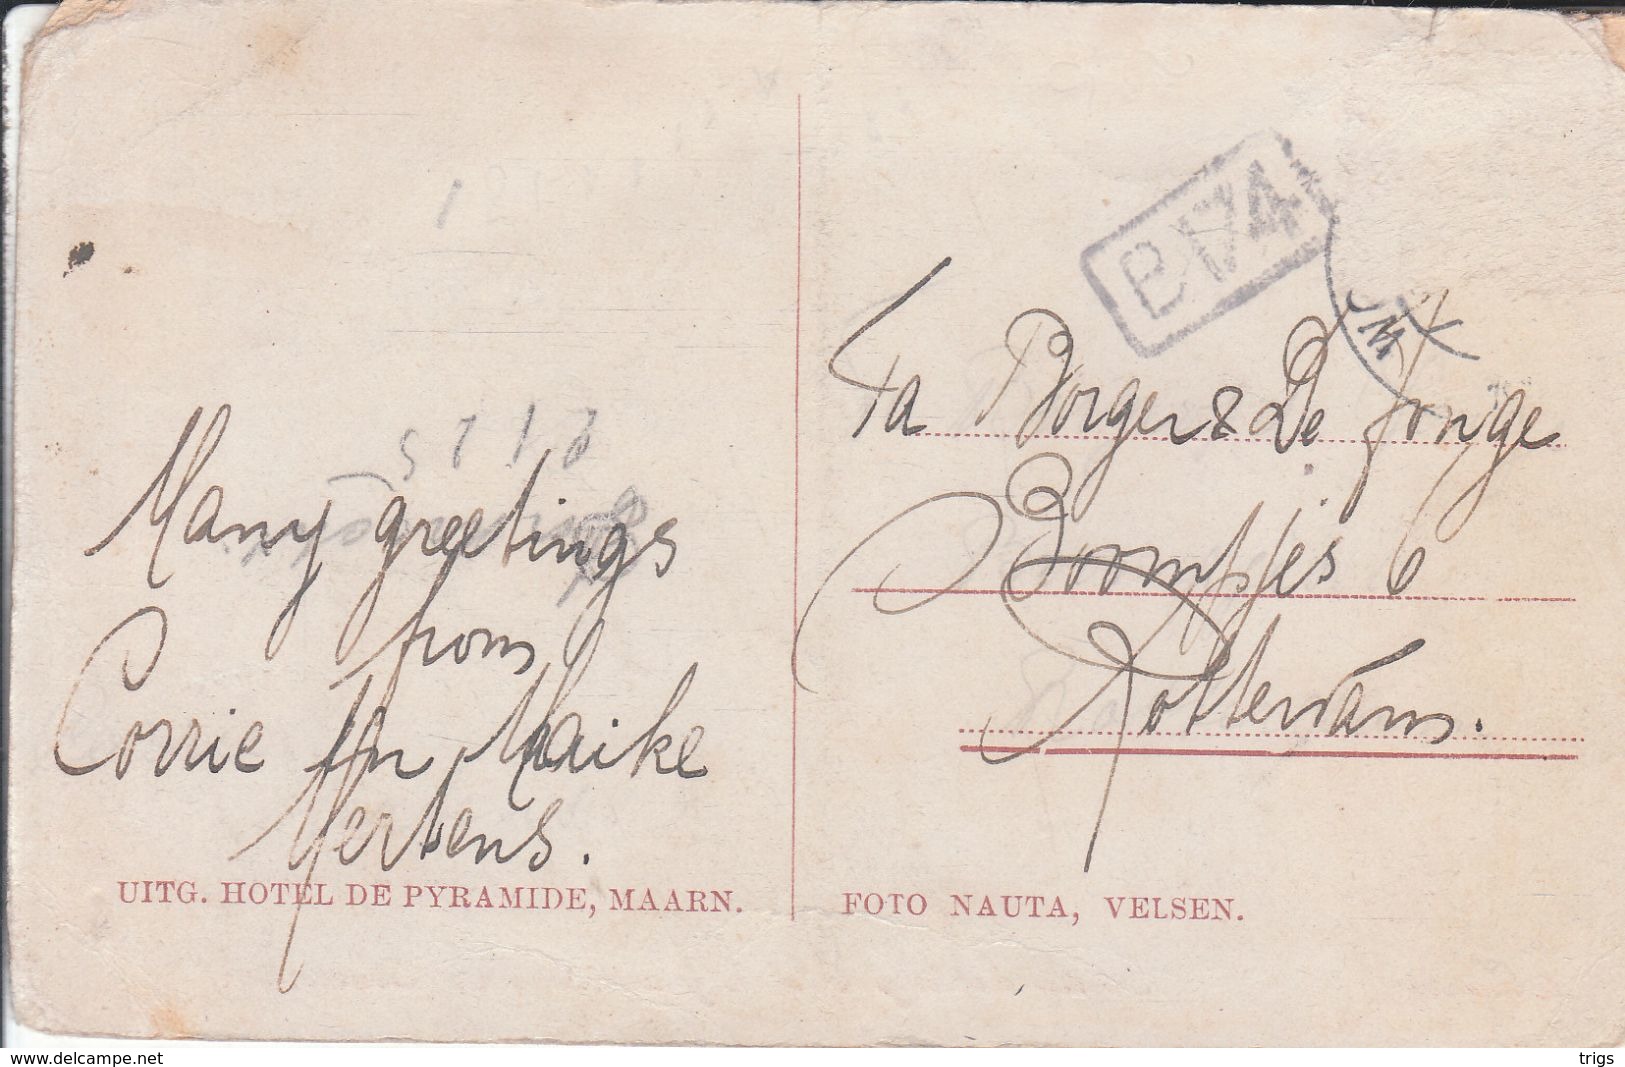 Many greetings
from
Corrie en Maaike
Mertens.
UITG. HOTEL DE PYRAMIDE, MAARN.
B 174
Fa Borger & De Jonge
Boompjes 6
Rotterdam.
FOTO NAUTA, VELSEN.
www.delcampe.net
trigs